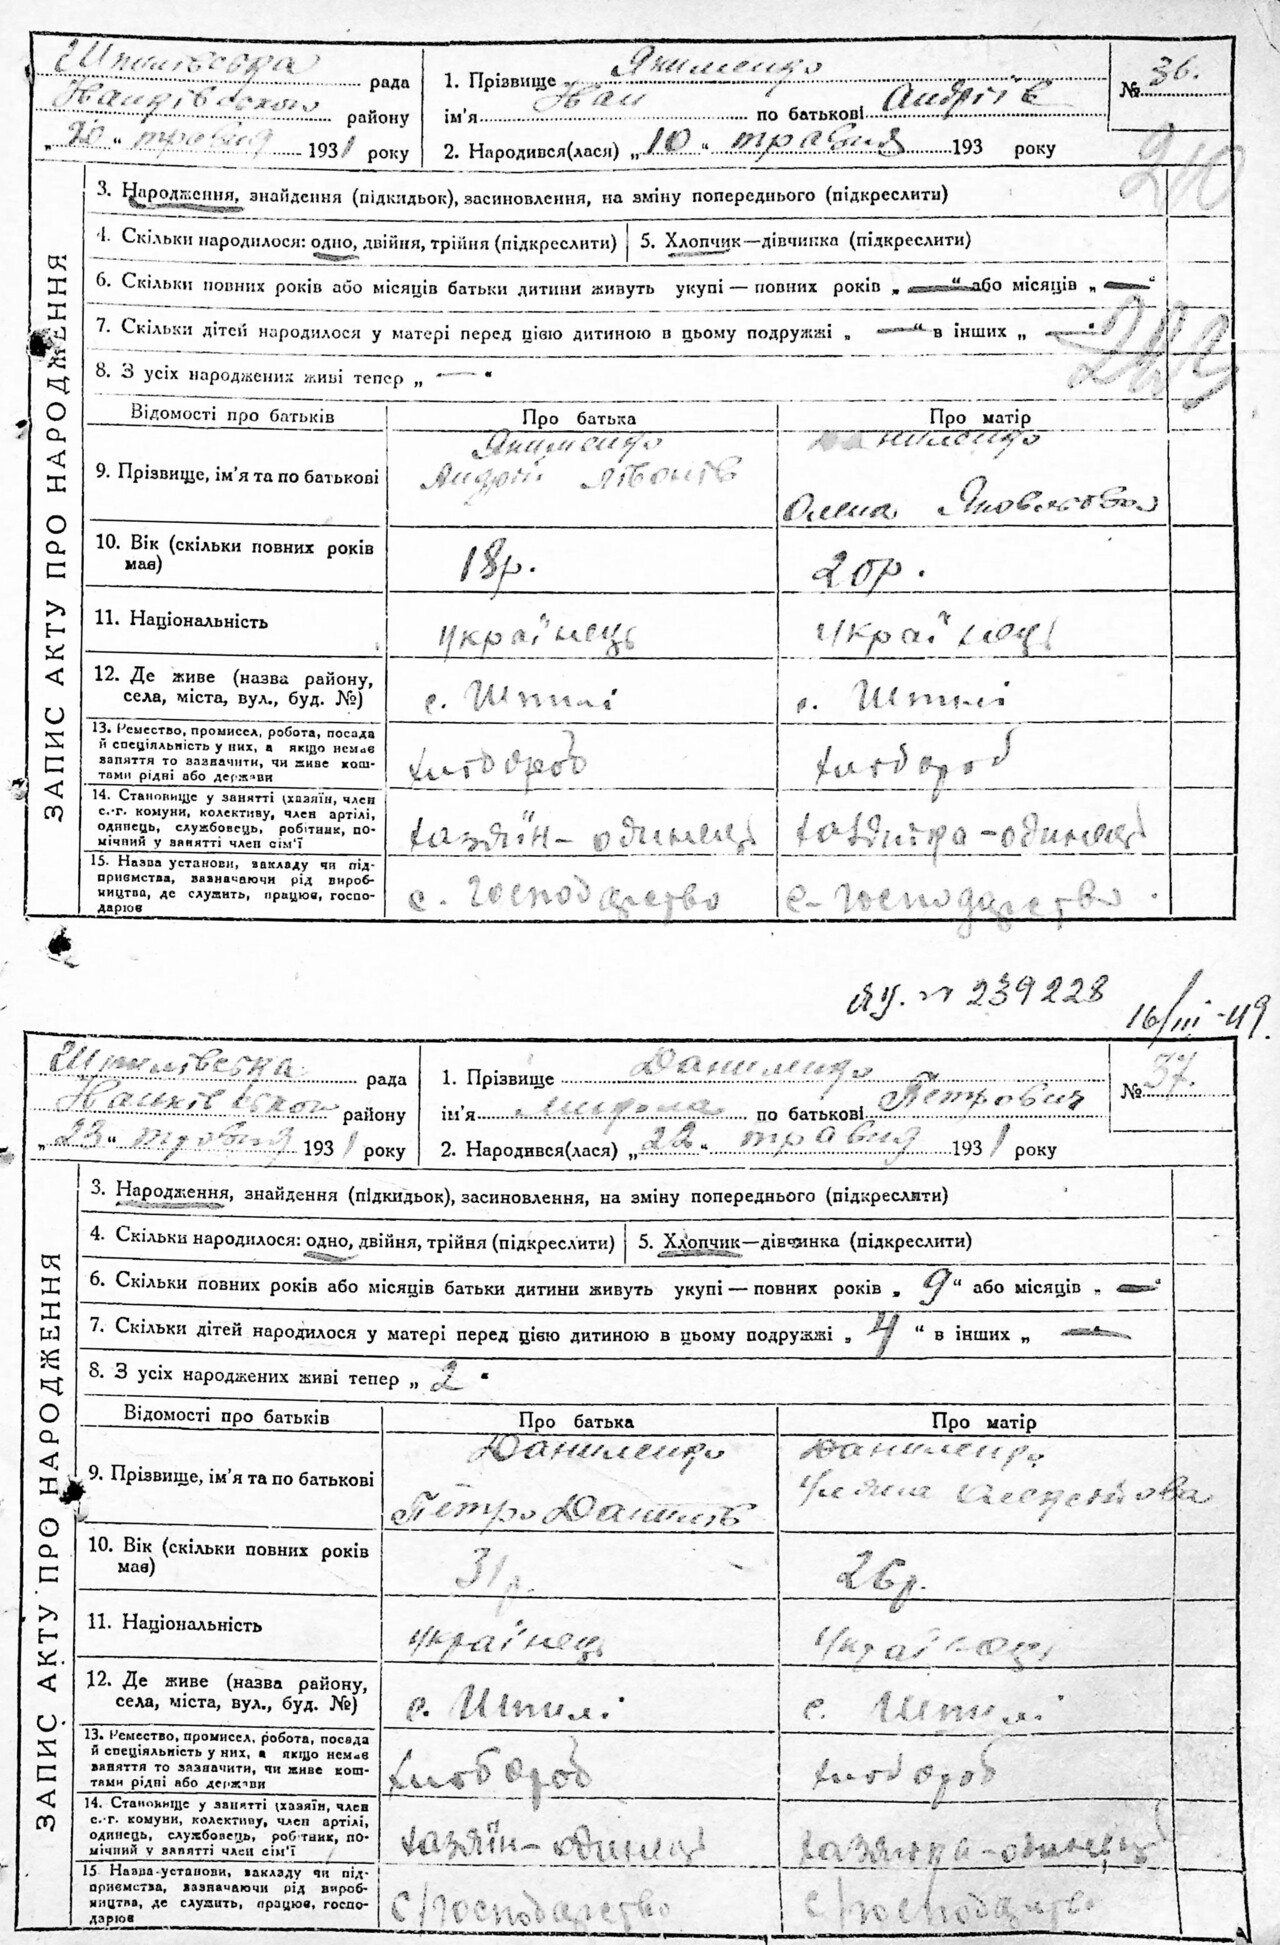 Шпилівська рада
Іванківського району
„20“ травня 1931 року
1. Прізвище Якименко
ім'я Іван по батькові Андріїв
2. Народився(лася) „10“ травня 193 року
№ 36.
210
ЗАПИС АКТУ ПРО НАРОДЖЕННЯ
3. Народження, знайдення (підкидьок), засиновлення, на зміну попереднього (підкреслити)
4. Скільки народилося: одно, двійня, трійня (підкреслити) 5. Хлопчик—дівчинка (підкреслити)
6. Скільки повних років або місяців батьки дитини живуть укупі — повних років „—“ або місяців „—“
7. Скільки дітей народилося у матері перед цією дитиною в цьому подружжі „—“ в інших „—“
8. З усіх народжених живі тепер „—“
Відомості про батьків Про батька Про матір
9. Прізвище, ім'я та по батькові
Якименко
Андрій
Даниленко
Олена Яковлєвна
10. Вік (скільки повних років має) 18р. 20р.
11. Національність українець українець
12. Де живе (назва району, села, міста, вул., буд. №) с. Шпилі с. Шпилі
13. Ремество, промисел, робота, посада й спеціяльність у них, а якщо немає заняття то зазначити, чи живе коштами рідні або держави хлібороб хлібороб
14. Становище у занятті (хазяїн, член с.-г. комуни, колективу, член артілі, одинець, службовець, робітник, помічний у занятті член сім'ї хазяїн-одинець хазяйка-одинець
15. Назва установи, закладу чи підприємства, зазначаючи рід виробництва, де служить, працює, господарює с. господарство с. господарство.
ЯЦ. № 239228 16/III-49.
Шпилівська рада
Іванківського району
„23“ травня 1931 року
1. Прізвище Даниленко
ім'я Микола по батькові Петрович
2. Народився(лася) „22“ травня 1931 року
№ 37.
ЗАПИС АКТУ ПРО НАРОДЖЕННЯ
3. Народження, знайдення (підкидьок), засиновлення, на зміну попереднього (підкреслити)
4. Скільки народилося: одно, двійня, трійня (підкреслити) 5. Хлопчик—дівчинка (підкреслити)
6. Скільки повних років або місяців батьки дитини живуть укупі — повних років „9“ або місяців „—“
7. Скільки дітей народилося у матері перед цією дитиною в цьому подружжі „4“ в інших „—“
8. З усіх народжених живі тепер „2“
Відомості про батьків Про батька Про матір
9. Прізвище, ім'я та по батькові
Даниленко
Петро Данилів
Даниленко
Уляна
10. Вік (скільки повних років має) 31р. 26р.
11. Національність українець українець
12. Де живе (назва району, села, міста, вул., буд. №) с. Шпилі с. Шпилі
13. Ремество, промисел, робота, посада й спеціяльність у них, а якщо немає заняття то зазначити, чи живе коштами рідні або держави хлібороб хлібороб
14. Становище у занятті (хазяїн, член с.-г. комуни, колективу, член артілі, одинець, службовець, робітник, помічний у занятті член сім'ї хазяїн-одинець хазяйка-одинець
15. Назва установи, закладу чи підприємства, зазначаючи рід виробництва, де служить, працює, господарює с/господарство с/господарство